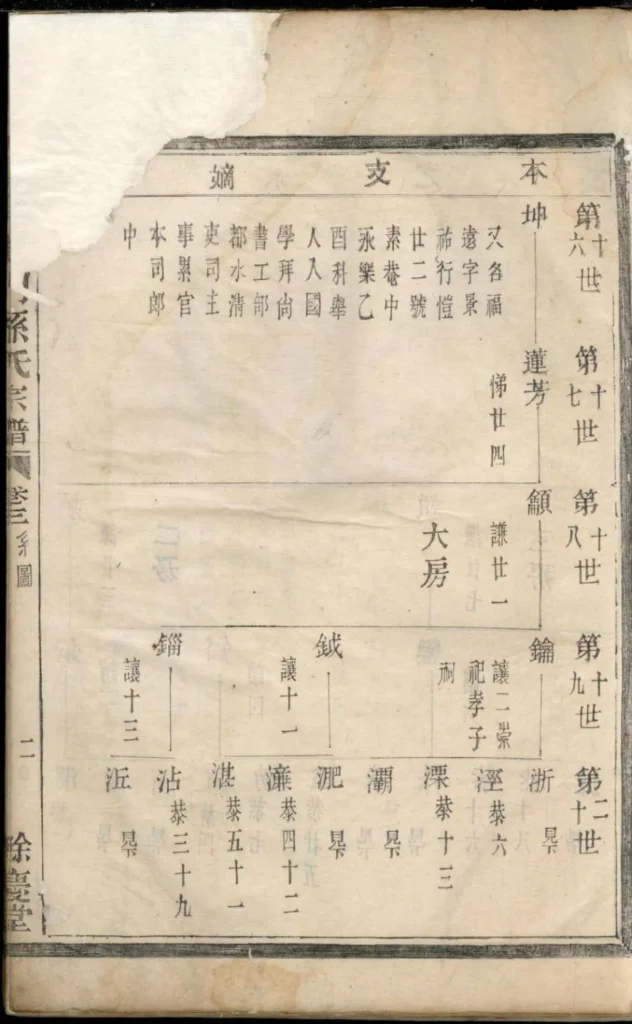 本支嫡
第十六世
坤
又名福
遠字景
祐行愷
廿二號
素菴中
永樂乙
酉科舉
人入國
學拜尙
書工部
都水淸
吏司主
事累官
本司郎
中
第十七世
蓮芳
悌廿四
第十八世
籲
謙廿一
大房
第十九世
鑰
讓二崇
祀孝子
祠
鉞
讓十一
鍿
讓十三
第二十世
浙
早卒
涇
恭六
溧
恭十三
灞
早卒
淝
早卒
濂
恭四十二
湛
恭五十一
沾
恭三十九
洍
早卒
孫氏宗譜
卷三
系圖
二
餘慶堂